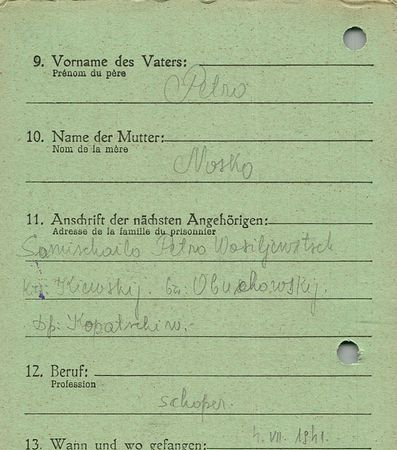 9. Vorname des Vaters:
Prénom du père
Petro
10. Name der Mutter:
Nom de la mère
Nosko
11. Anschrift der nächsten Angehörigen:
Adresse de la famille du prisonnier
Samischailo Petro Wasiljewitsch
Kiewskij. Obuchowskij.
Df: Kopatschiw.
12. Beruf:
Profession
schoper.
13. Wann und wo gefangen: VII. 1941.